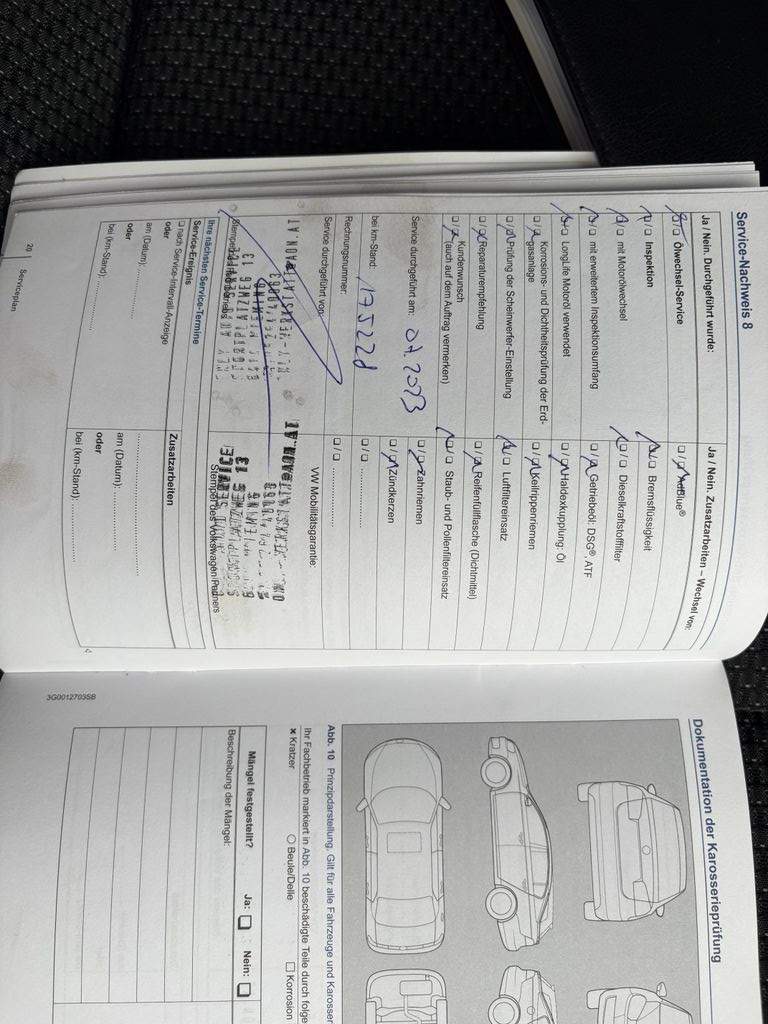 Service-Nachweis 8
Ja / Nein. Durchgeführt wurde:
Ölwechsel-Service
Inspektion
mit Motorölwechsel
mit erweitertem Inspektionsumfang
LongLife Motoröl verwendet
Korrosions- und Dichtheitsprüfung der Erd-
gasanlage
Prüfung der Scheinwerfer-Einstellung
Reparaturempfehlung
Kundenwunsch
(auch auf dem Auftrag vermerken)
Service durchgeführt am: 07.2023
bei km-Stand:
Rechnungsnummer:
Service durchgeführt von:
Ihre nächsten Service-Termine
Service-Ereignis
nach Service-Intervall-Anzeige
oder
am (Datum):
oder
bei (km-Stand):
20 | Serviceplan
Ja / Nein. Zusatzarbeiten – Wechsel von:
AdBlue®
Bremsflüssigkeit
Dieselkraftstofffilter
Getriebeöl: DSG®, ATF
Haldexkupplung: Öl
Keilrippenriemen
Luftfiltereinsatz
Reifenfüllflasche (Dichtmittel)
Staub- und Pollenfiltereinsatz
Zahnriemen
Zündkerzen
VW Mobilitätsgarantie:
Stempel des Volkswagen Partners
Zusatzarbeiten
am (Datum):
oder
bei (km-Stand):
3G0012703SB
Dokumentation der Karosserieprüfung
Abb. 10 Prinzipdarstellung. Gilt für alle Fahrzeuge und Karosser
Ihr Fachbetrieb markiert in Abb. 10 beschädigte Teile durch folge
× Kratzer ○ Beule/Delle □ Korrosion
Mängel festgestellt? Ja: Nein:
Beschreibung der Mängel: